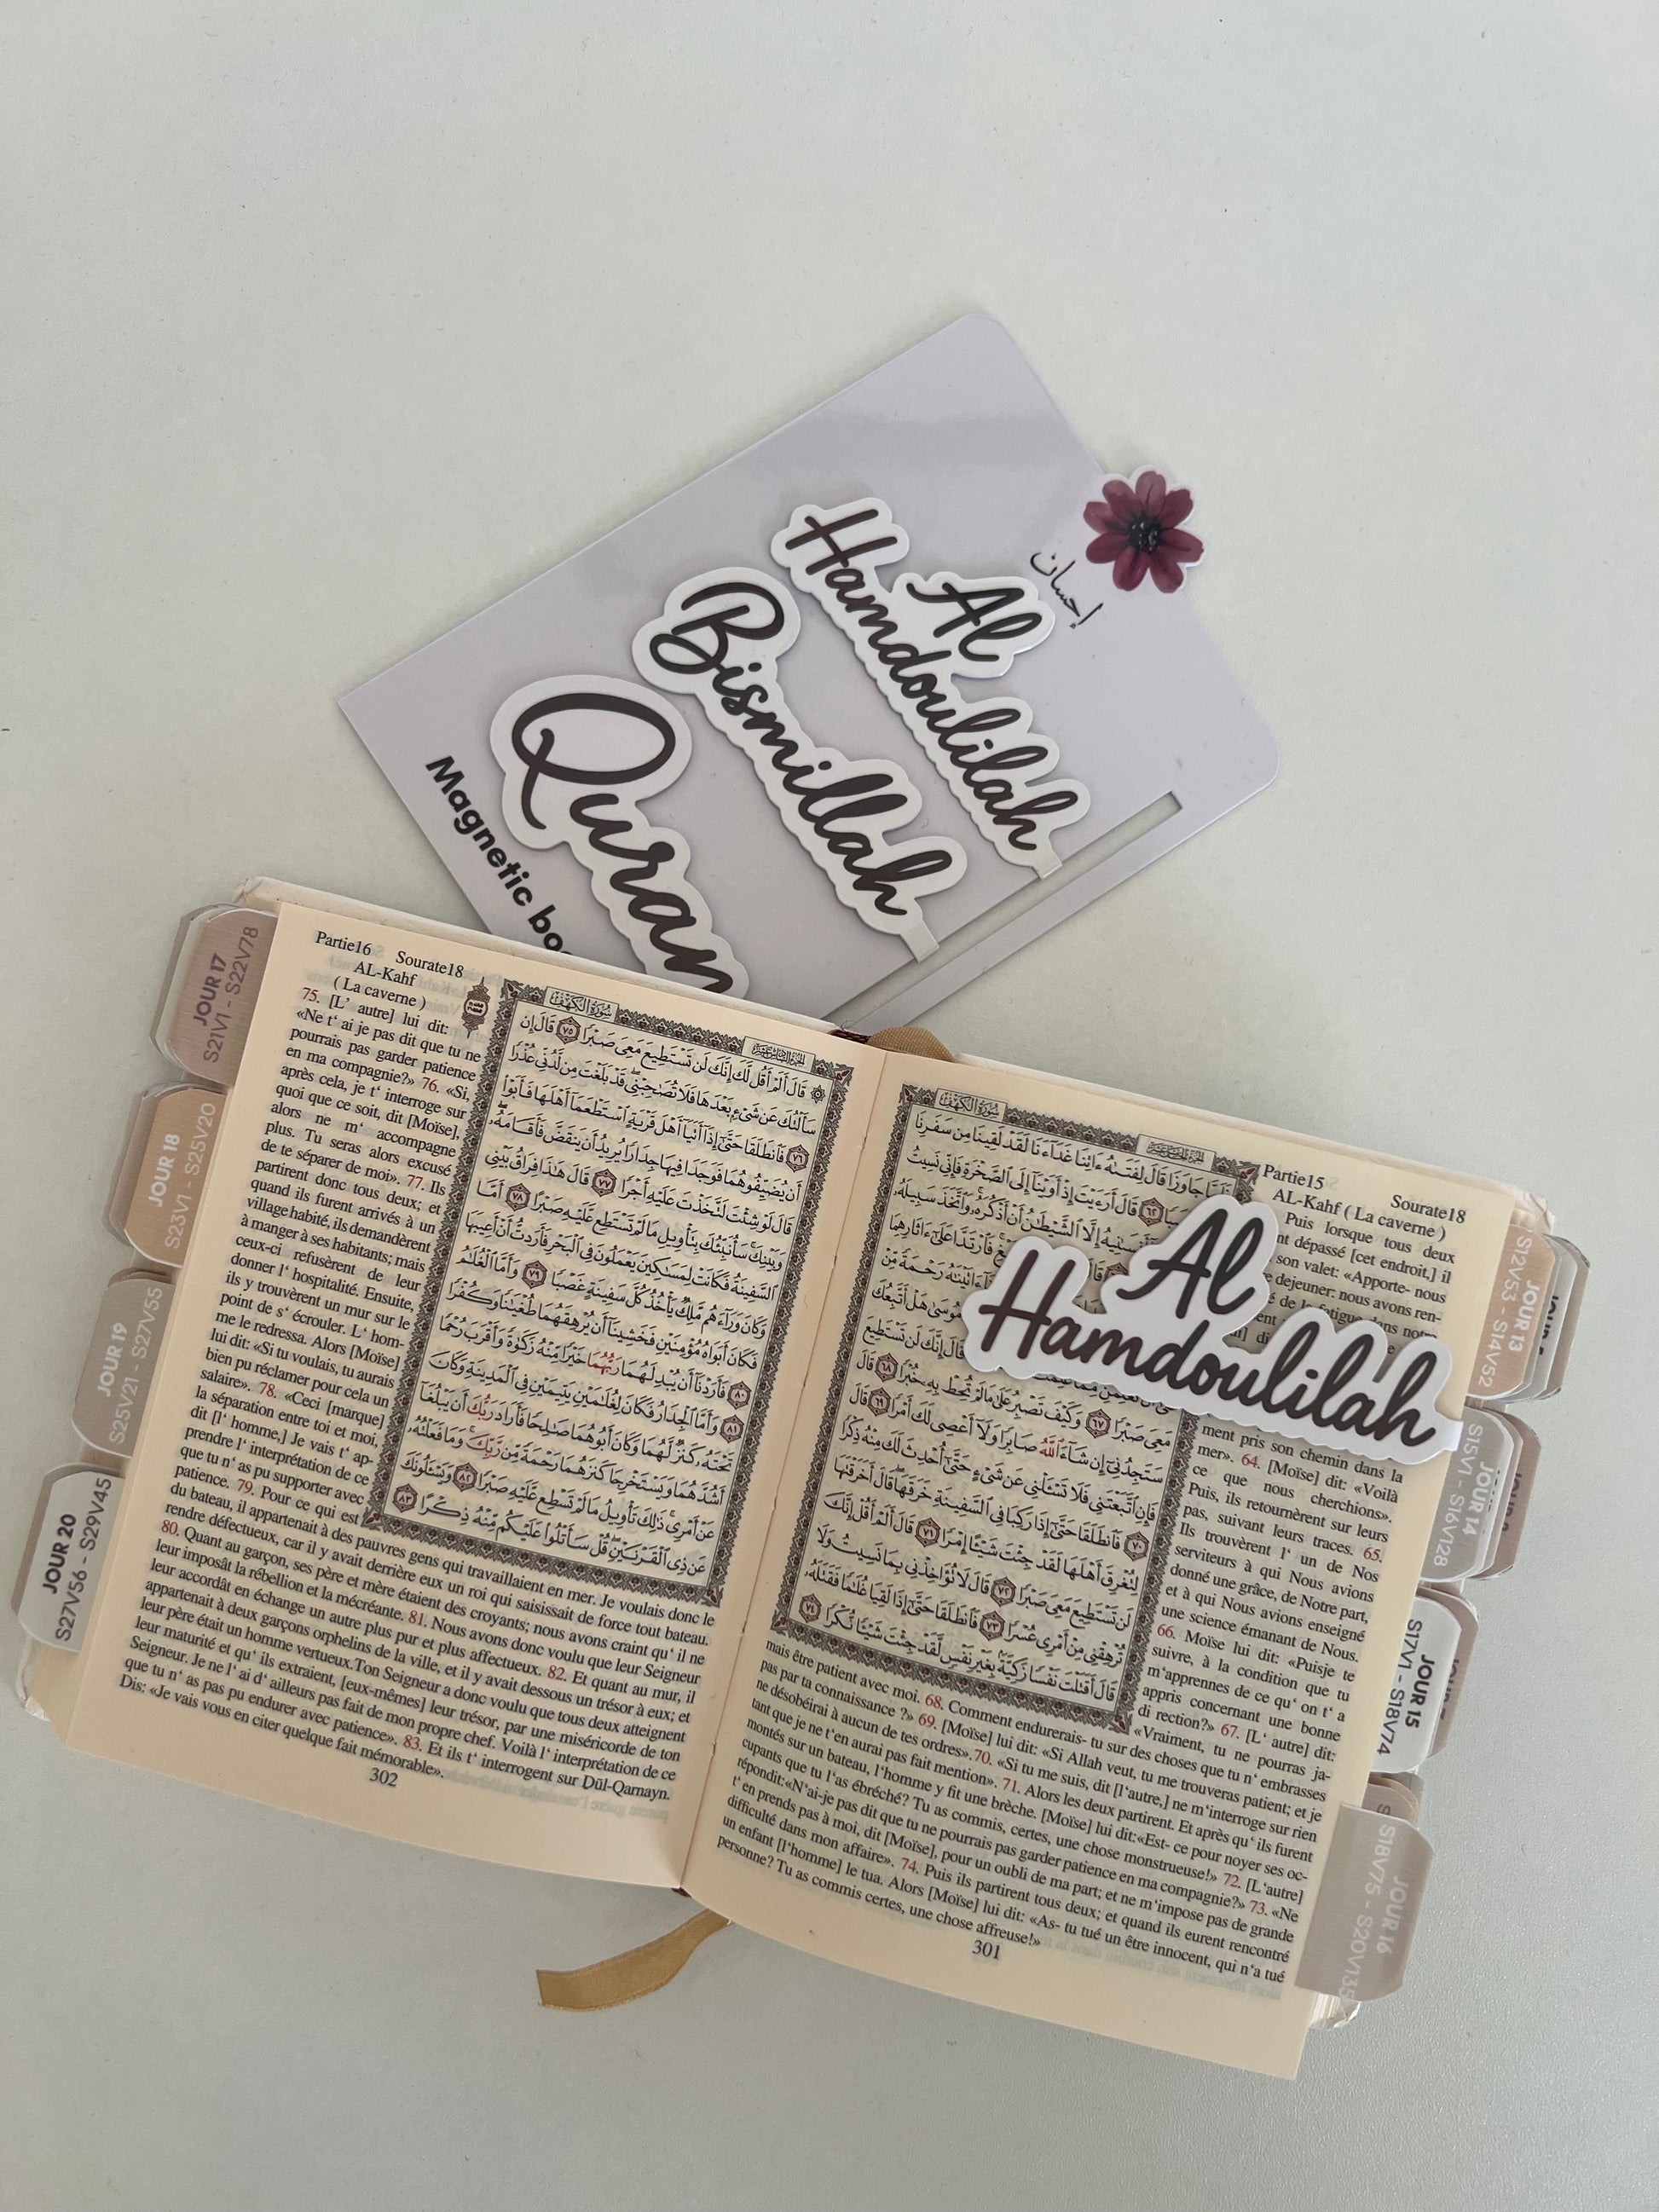 إحسان
Al
Hamdoulilah
Bismillah
Quran
Magnetic bo
Partie16 Sourate18
AL-Kahf
( La caverne )
75. [L' autre] lui dit:
«Ne t' ai je pas dit que tu ne
pourrais pas garder patience
en ma compagnie?» 76. «Si,
après cela, je t' interroge sur
quoi que ce soit, dit [Moïse],
alors ne m' accompagne
plus. Tu seras alors excusé
de te séparer de moi». 77. Ils
partirent donc tous deux; et
quand ils furent arrivés à un
village habité, ils demandèrent
à manger à ses habitants; mais
ceux-ci refusèrent de leur
donner l' hospitalité. Ensuite,
ils y trouvèrent un mur sur le
point de s' écrouler. L' hom-
me le redressa. Alors [Moïse]
lui dit: «Si tu voulais, tu aurais
bien pu réclamer pour cela un
salaire». 78. «Ceci [marque]
la séparation entre toi et moi,
dit [l' homme,] Je vais t' ap-
prendre l' interprétation de ce
que tu n' as pu supporter avec
patience. 79. Pour ce qui est
du bateau, il appartenait à des pauvres gens qui travaillaient en mer. Je voulais donc le
rendre défectueux, car il y avait derrière eux un roi qui saisissait de force tout bateau.
80. Quant au garçon, ses père et mère étaient des croyants; nous avons craint qu' il ne
leur imposât la rébellion et la mécréante. 81. Nous avons donc voulu que leur Seigneur
leur accordât en échange un autre plus pur et plus affectueux. 82. Et quant au mur, il
appartenait à deux garçons orphelins de la ville, et il y avait dessous un trésor à eux; et
leur père était un homme vertueux.Ton Seigneur a donc voulu que tous deux atteignent
leur maturité et qu' ils extraient, [eux-mêmes] leur trésor, par une miséricorde de ton
Seigneur. Je ne l' ai d' ailleurs pas fait de mon propre chef. Voilà l' interprétation de ce
que tu n' as pas pu endurer avec patience». 83. Et ils t' interrogent sur Dūl-Qarnayn.
Dis: «Je vais vous en citer quelque fait mémorable».
302
سُورَةُ الكَهْفِ
۞ قَالَ أَلَمْ أَقُل لَّكَ إِنَّكَ لَن تَسْتَطِيعَ مَعِيَ صَبْرًا ٧٥ قَالَ إِن
سَأَلْتُكَ عَن شَيْءٍ بَعْدَهَا فَلَا تُصَاحِبْنِي قَدْ بَلَغْتَ مِن لَّدُنِّي عُذْرًا
٧٦ فَانطَلَقَا حَتَّىٰ إِذَا أَتَيَا أَهْلَ قَرْيَةٍ اسْتَطْعَمَا أَهْلَهَا فَأَبَوْا
أَن يُضَيِّفُوهُمَا فَوَجَدَا فِيهَا جِدَارًا يُرِيدُ أَن يَنقَضَّ فَأَقَامَهُ
قَالَ لَوْ شِئْتَ لَتَّخَذْتَ عَلَيْهِ أَجْرًا ٧٧ قَالَ هَٰذَا فِرَاقُ بَيْنِي
وَبَيْنِكَ سَأُنَبِّئُكَ بِتَأْوِيلِ مَا لَمْ تَسْتَطِع عَّلَيْهِ صَبْرًا ٧٨ أَمَّا
السَّفِينَةُ فَكَانَتْ لِمَسَاكِينَ يَعْمَلُونَ فِي الْبَحْرِ فَأَرَدتُّ أَنْ أَعِيبَهَا
وَكَانَ وَرَاءَهُم مَّلِكٌ يَأْخُذُ كُلَّ سَفِينَةٍ غَصْبًا ٧٩ وَأَمَّا الْغُلَامُ
فَكَانَ أَبَوَاهُ مُؤْمِنَيْنِ فَخَشِينَا أَن يُرْهِقَهُمَا طُغْيَانًا وَكُفْرًا
٨٠ فَأَرَدْنَا أَن يُبْدِلَهُمَا رَبُّهُمَا خَيْرًا مِّنْهُ زَكَاةً وَأَقْرَبَ رُحْمًا
٨١ وَأَمَّا الْجِدَارُ فَكَانَ لِغُلَامَيْنِ يَتِيمَيْنِ فِي الْمَدِينَةِ وَكَانَ
تَحْتَهُ كَنزٌ لَّهُمَا وَكَانَ أَبُوهُمَا صَالِحًا فَأَرَادَ رَبُّكَ أَن يَبْلُغَا
أَشُدَّهُمَا وَيَسْتَخْرِجَا كَنزَهُمَا رَحْمَةً مِّن رَّبِّكَ وَمَا فَعَلْتُهُ
عَنْ أَمْرِي ذَٰلِكَ تَأْوِيلُ مَا لَمْ تَسْطِع عَّلَيْهِ صَبْرًا ٨٢ وَيَسْأَلُونَكَ
عَن ذِي الْقَرْنَيْنِ قُلْ سَأَتْلُو عَلَيْكُم مِّنْهُ ذِكْرًا ٨٣
سُورَةُ الكَهْفِ
جَاوَزَا قَالَ لِفَتَاهُ آتِنَا غَدَاءَنَا لَقَدْ لَقِينَا مِن سَفَرِنَا
٦٢ قَالَ أَرَأَيْتَ إِذْ أَوَيْنَا إِلَى الصَّخْرَةِ فَإِنِّي نَسِيتُ
أَنسَانِيهُ إِلَّا الشَّيْطَانُ أَنْ أَذْكُرَهُ وَاتَّخَذَ سَبِيلَهُ
فَارْتَدَّا عَلَىٰ آثَارِهِمَا
آتَيْنَاهُ رَحْمَةً مِّنْ
مُوسَىٰ هَلْ أَتَّبِعُكَ
قَالَ إِنَّكَ لَن تَسْتَطِيعَ
مَعِيَ صَبْرًا ٦٧ وَكَيْفَ تَصْبِرُ عَلَىٰ مَا لَمْ تُحِطْ بِهِ خُبْرًا ٦٨ قَالَ
سَتَجِدُنِي إِن شَاءَ اللَّهُ صَابِرًا وَلَا أَعْصِي لَكَ أَمْرًا ٦٩ قَالَ
فَإِنِ اتَّبَعْتَنِي فَلَا تَسْأَلْنِي عَن شَيْءٍ حَتَّىٰ أُحْدِثَ لَكَ مِنْهُ ذِكْرًا
٧٠ فَانطَلَقَا حَتَّىٰ إِذَا رَكِبَا فِي السَّفِينَةِ خَرَقَهَا قَالَ أَخَرَقْتَهَا
لِتُغْرِقَ أَهْلَهَا لَقَدْ جِئْتَ شَيْئًا إِمْرًا ٧١ قَالَ أَلَمْ أَقُلْ إِنَّكَ
لَن تَسْتَطِيعَ مَعِيَ صَبْرًا ٧٢ قَالَ لَا تُؤَاخِذْنِي بِمَا نَسِيتُ وَلَا
تُرْهِقْنِي مِنْ أَمْرِي عُسْرًا ٧٣ فَانطَلَقَا حَتَّىٰ إِذَا لَقِيَا غُلَامًا فَقَتَلَهُ
قَالَ أَقَتَلْتَ نَفْسًا زَكِيَّةً بِغَيْرِ نَفْسٍ لَّقَدْ جِئْتَ شَيْئًا نُّكْرًا ٧٤
Al
Hamdoulilah
Partie15 Sourate18
AL-Kahf ( La caverne )
Puis lorsque tous deux
dépassé [cet endroit,] il
son valet: «Apporte- nous
dejeuner: nous avons ren-
de la fatigue dans notre
ment pris son chemin dans la
mer». 64. [Moïse] dit: «Voilà
ce que nous cherchions».
Puis, ils retournèrent sur leurs
pas, suivant leurs traces. 65.
Ils trouvèrent l' un de Nos
serviteurs à qui Nous avions
donné une grâce, de Notre part,
et à qui Nous avions enseigné
une science émanant de Nous.
66. Moïse lui dit: «Puisje te
suivre, à la condition que tu
m'apprennes de ce qu' on t' a
appris concernant une bonne
di rection?» 67. [L' autre] dit:
«Vraiment, tu ne pourras ja-
mais être patient avec moi. 68. Comment endurerais- tu sur des choses que tu n' embrasses
pas par ta connaissance ?» 69. [Moïse] lui dit: «Si Allah veut, tu me trouveras patient; et je
ne désobéirai à aucun de tes ordres».70. «Si tu me suis, dit [l'autre,] ne m'interroge sur rien
tant que je ne t'en aurai pas fait mention». 71. Alors les deux partirent. Et après qu' ils furent
montés sur un bateau, l'homme y fit une brèche. [Moïse] lui dit:«Est- ce pour noyer ses oc-
cupants que tu l'as ébréché? Tu as commis, certes, une chose monstrueuse!» 72. [L'autre]
répondit:«N'ai-je pas dit que tu ne pourrais pas garder patience en ma compagnie?» 73. «Ne
t' en prends pas à moi, dit [Moïse], pour un oubli de ma part; et ne m'impose pas de grande
difficulté dans mon affaire». 74. Puis ils partirent tous deux; et quand ils eurent rencontré
un enfant [l'homme] le tua. Alors [Moïse] lui dit: «As- tu tué un être innocent, qui n'a tué
personne? Tu as commis certes, une chose affreuse!»
301
JOUR 17
S21V1 - S22V78
JOUR 18
S23V1 - S25V20
JOUR 19
S25V21 - S27V55
JOUR 20
S27V56 - S29V45
JOUR 13
S12V53 - S14V52
JOUR 14
S15V1 - S16V128
JOUR 15
S17V1 - S18V74
JOUR 16
S18V75 - S20V135